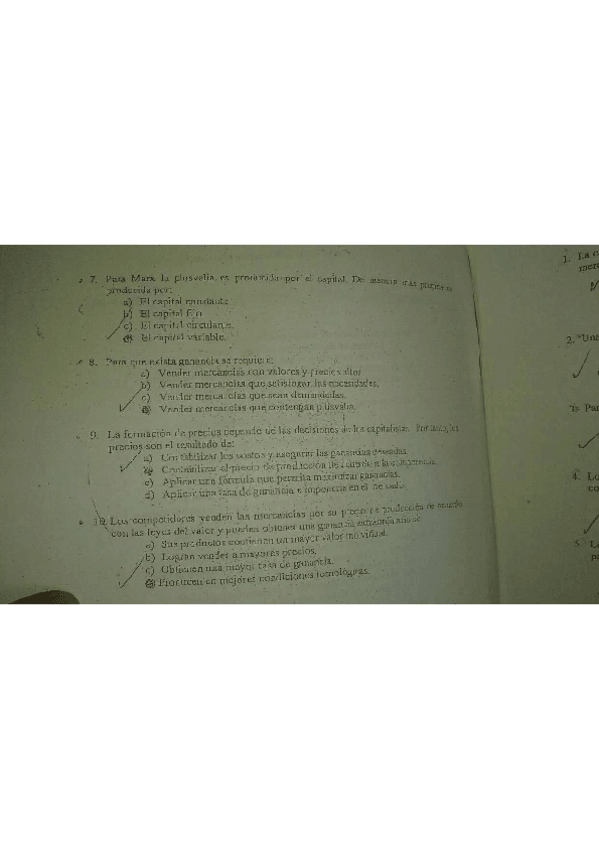 7. Para Marx la plusvalía es producida por el capital. De manera más
producida por:
a) El capital constante
b) El capital fijo
c) El capital circulante.
d) El capital variable.
8. Para que exista ganancia se requiere:
a) Vender mercancías con valores y precios altos
b) Vender mercancías que satisfagan las necesidades.
c) Vender mercancías que sean demandadas.
d) Vender mercancías que contengan plusvalía.
9. La formación de precios depende de las decisiones de los capitalistas. Por tanto, los
precios son el resultado de:
a) los costos y asegurar las ganancias
b) el precio de producción
c) Aplicar una fórmula que permita maximizar ganancias.
d) Aplicar una tasa de ganancia e imponerla en el mercado.
10. Los competidores venden las mercancías por su precio de producción de acuerdo
con las leyes del valor y pueden obtener una ganancia extraordinaria
a) Sus productos contienen un mayor valor individual.
b) Logran vender a mayores precios.
c) Obtienen una mayor tasa de ganancia.
d) Producen en mejores condiciones tecnológicas.
1. La
2. "Una
3. Para
4. Lo
co
5. La